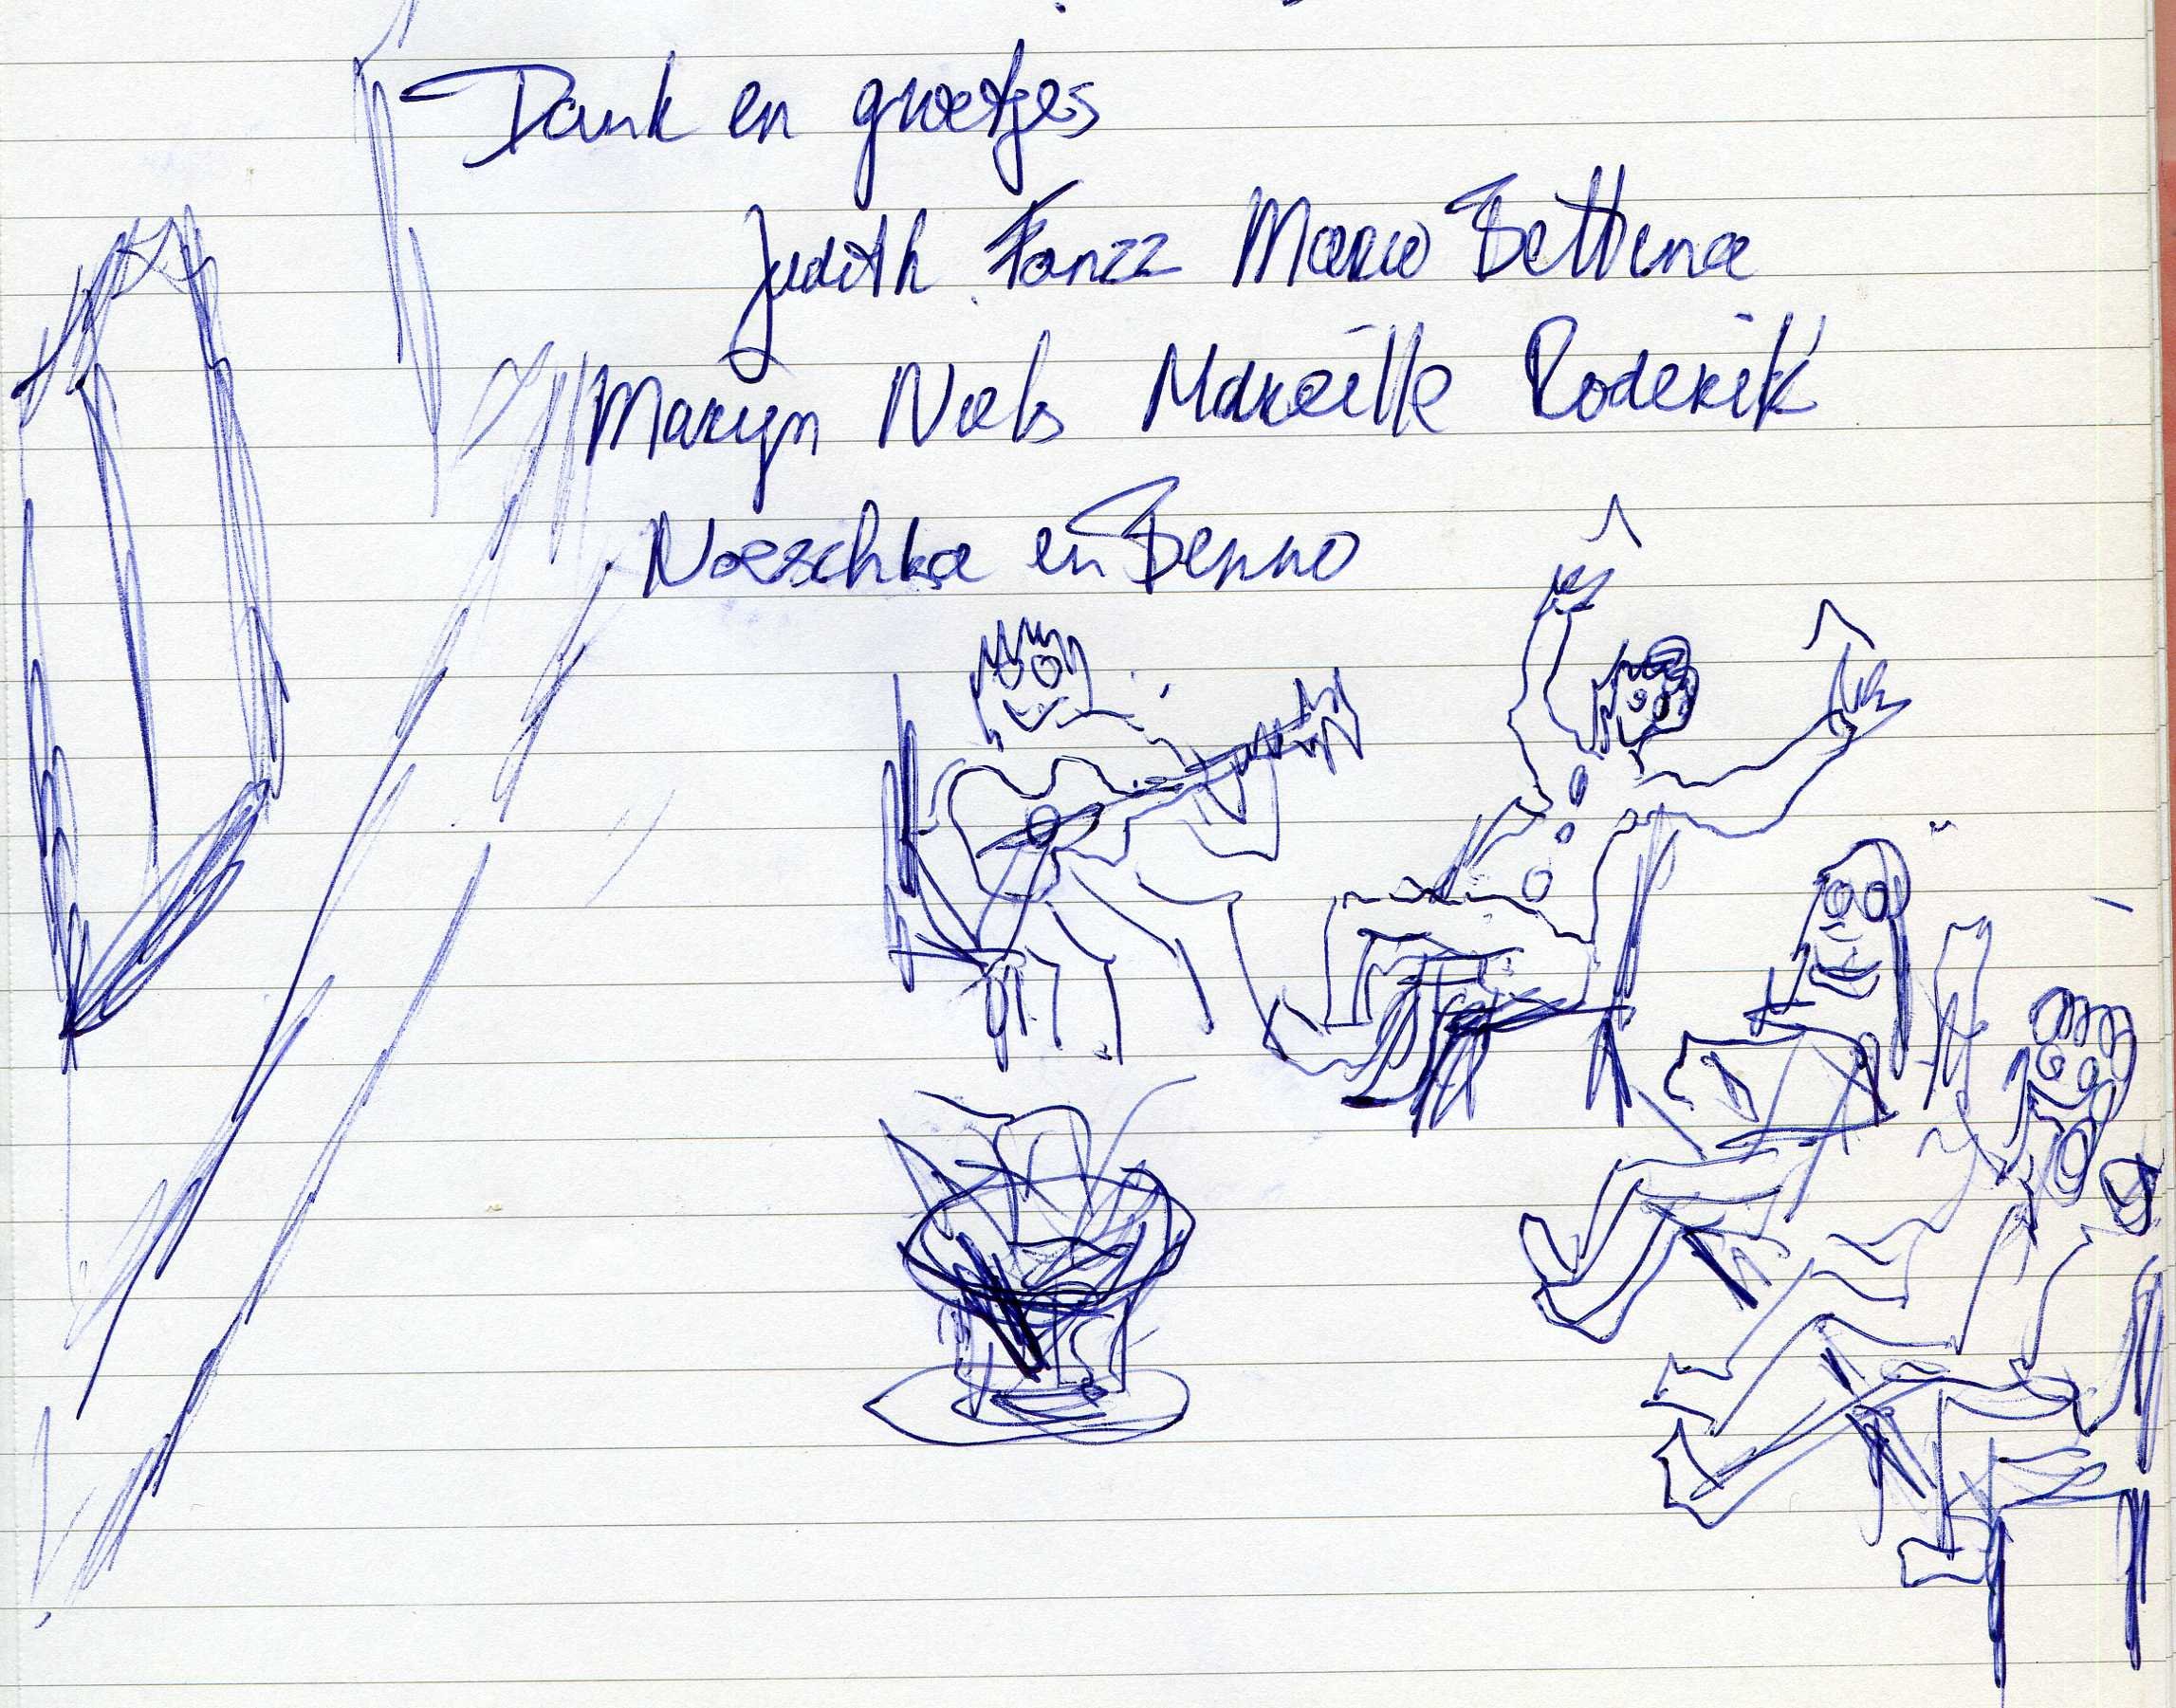 Dank en groetjes
Judith Fanzz Mario Bettina
Maryn Niels Mareille Roderik
Noeschka en Benno